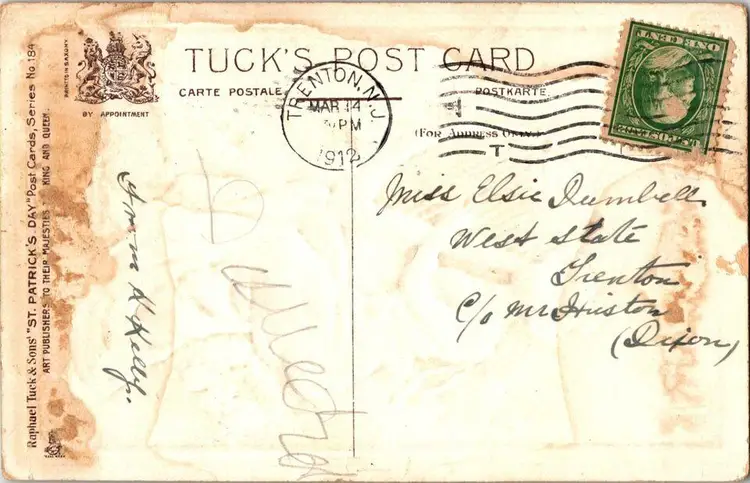 TUCK'S POST CARD
CARTE POSTALE
POSTKARTE
(FOR ADDRESS ONLY)
PRINTED IN SAXONY
BY APPOINTMENT
Raphael Tuck & Sons' "ST. PATRICK'S DAY" Post Cards, Series No. 184
ART PUBLISHERS TO THEIR MAJESTIES KING AND QUEEN.
TRENTON, N.J.
MAR 14
PM
1912
T
From H Kelly.
Miss Elsie Dumbell
West State
Trenton
c/o Mr Hüston
(Dixon)